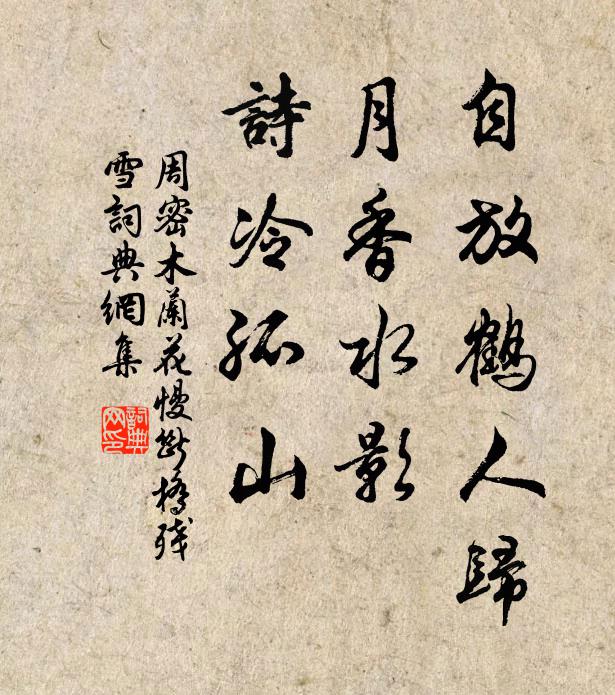 自放鶴人歸
月香水影
詩冷孤山
周密木蘭花慢斷橋殘
雪詞典網集
詞典
网印